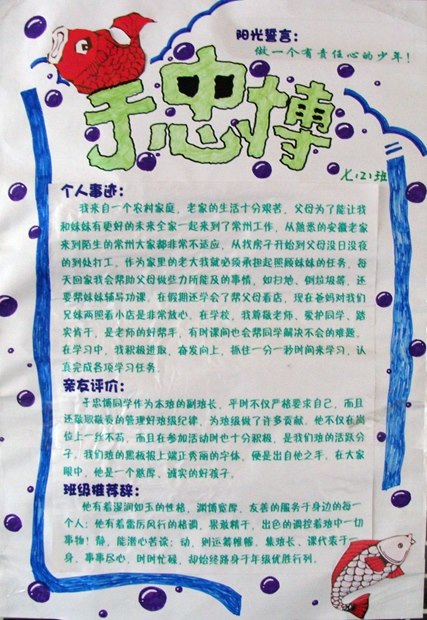 阳光誓言：
做一个有责任心的少年！
于忠博
七（2）班
个人事迹：
我来自一个农村家庭，老家的生活十分艰苦，父母为了能让我
和妹妹有更好的未来全家一起来到了常州工作，从熟悉的安徽老家
来到陌生的常州大家都非常不适应，从找房子开始到父母没日没夜
的到处打工，作为家里的老大我就必须承担起照顾妹妹的任务，每
天回家我会帮助父母做些力所能及的事情，如扫地、倒垃圾等，还
要帮妹妹辅导功课，在假期还学会了帮父母看店，现在爸妈对我们
兄妹两照看小店是非常放心，在学校，我尊敬老师、爱护同学、踏
实肯干，是老师的好帮手，有时课间也会帮同学解决不会的难题，
在学习中，我积极进取，奋发向上，抓住一分一秒时间来学习，认
真完成各项学习任务。
亲友评价：
于忠博同学作为本班的副班长，平时不仅严格要求自己，而且
还兢兢业业的管理好班级纪律，为班级做了许多贡献，他不仅在岗
位上一丝不苟，而且在参加活动时也十分积极，是我们班的活跃分
子，我们班的黑板报上端正秀丽的字体，便是出自他之手，在大家
眼中，他是一个憨厚、诚实的好孩子。
班级推荐辞：
他有着温润如玉的性格，渊博宽厚，友善的服务于身边的每一
个人；他有着雷厉风行的格调，果敢精干，出色的调控着班中一切
事物！静，能潜心苦读；动，则运筹帷幄，集班长、课代表于一
身，事事尽心，时时忙碌，却始终跻身于年级优胜行列。